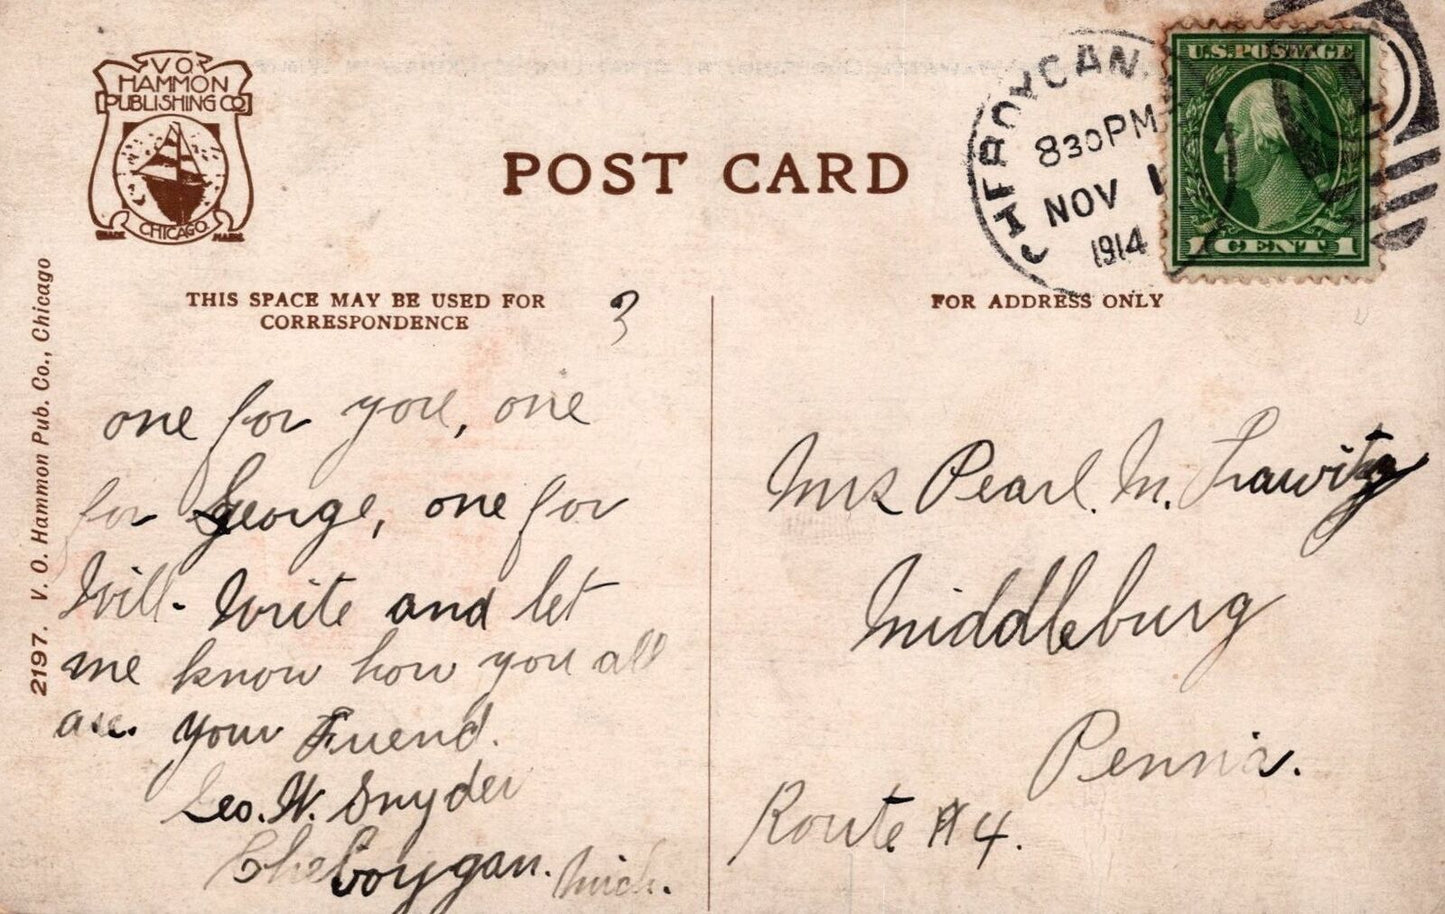 V.O.
HAMMON
PUBLISHING CO
CHICAGO
TRADE MARK
POST CARD
CHEBOYGAN,
830PM
NOV 1
1914
U.S. POSTAGE
1 CENT 1
THIS SPACE MAY BE USED FOR
CORRESPONDENCE
3
FOR ADDRESS ONLY
2197. V. O. Hammon Pub. Co., Chicago
one for you, one
for George, one for
Will. Write and let
me know how you all
are. Your Friend.
Geo. W. Snyder
Cheboygan. Mich.
Mrs Pearl. M. Frawitz
Middleburg
Penn'a.
Route #4.